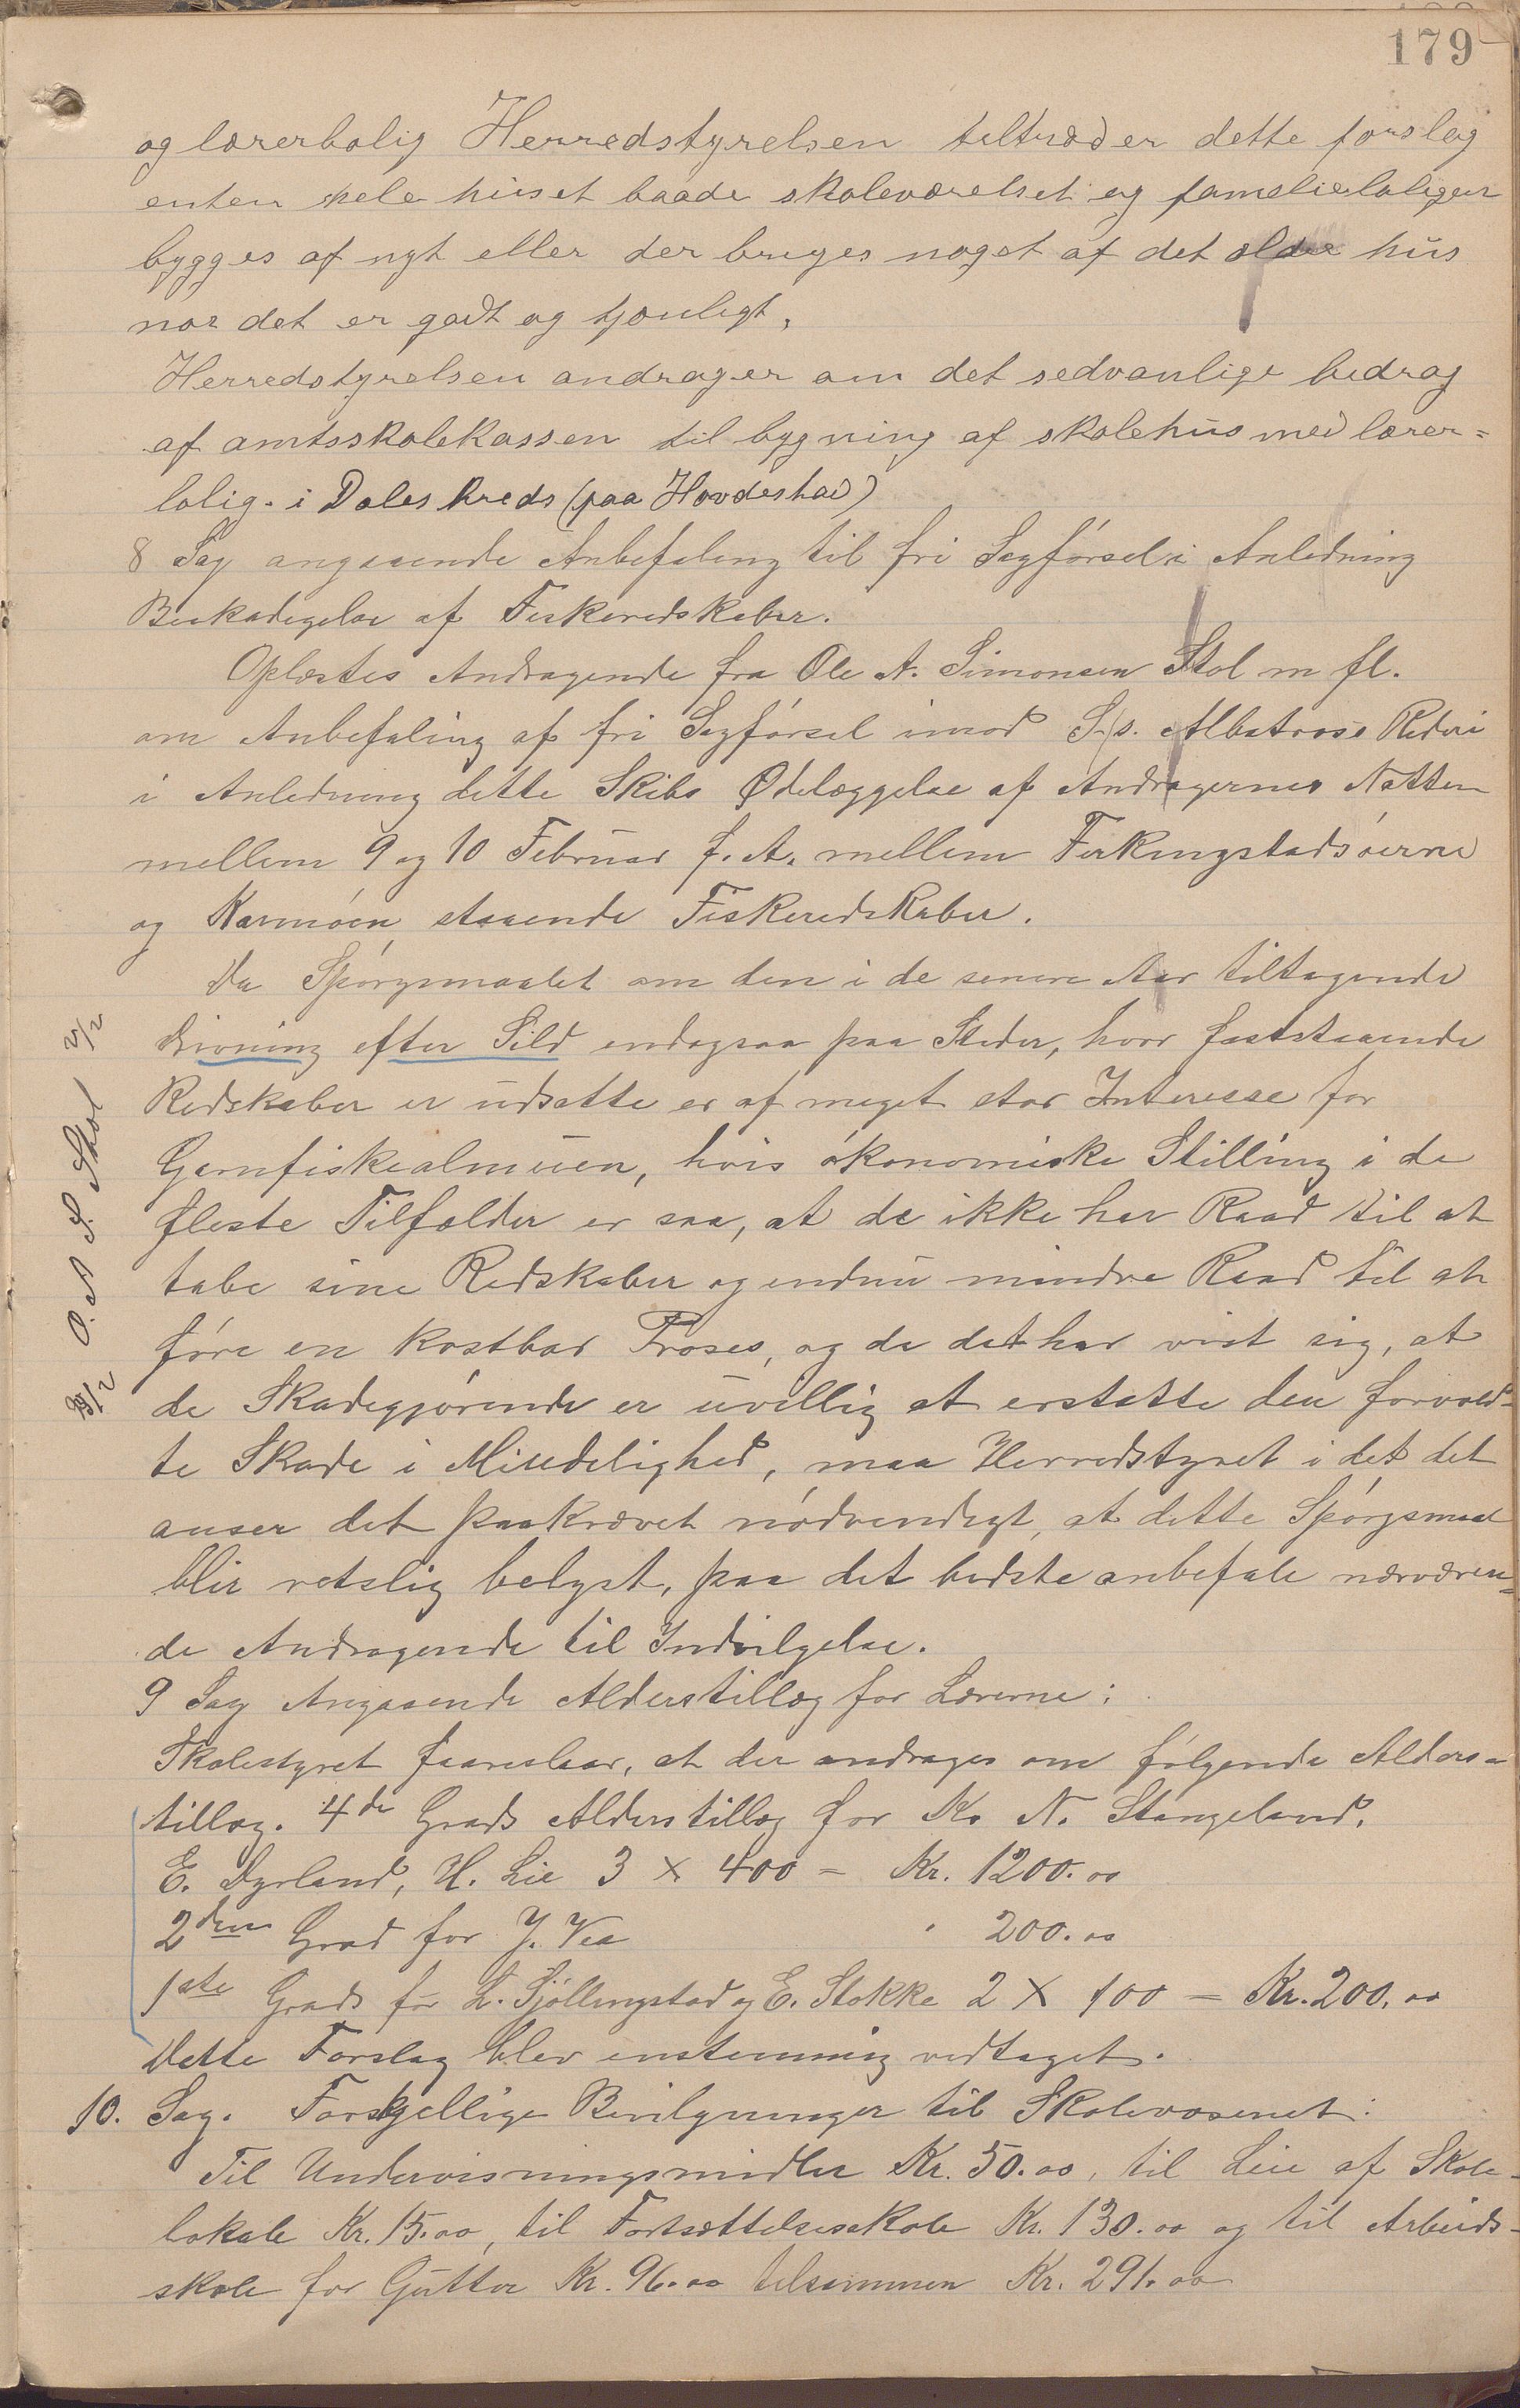 179
og lærerbolig Herredstyrelsen tiltræder dette forslag
enten hele huset baade skoleværelset og familieboligen
bygges af nyt eller der bruges noget af det ældre hus
når det er godt og tjenligt,
Herredstyrelsen andrager om det sedvanlige bidrag
af amtsskolekassen til bygning af skolehus med lærer=
bolig. i Dales kreds (paa Hovdestad)
8 Sag angaaende Anbefaling til fri Sagførsel i Anledning
Beskadigelse af Fiskeredskaber.
Oplæstes Andragende fra Ole A. Simonsen Stol m fl.
om Anbefaling af fri Sagførsel imod S/s. Albatross Rederi
i Anledning dette Skibs Ødelæggelse af Andragernes Natten
mellem 9 og 10 Februar f. A. mellem Ferkingstadsøerne
og Karmøen staaende Fiskeredskaber.
Da Spørgsmaalet om den i de senere Aar tiltagende
Drivning efter Sild endogsaa paa Steder, hvor faststaaende
Redskaber er udsatte er af meget stor Interesse for
Garnfiskealmuen, hvis økonomiske Stilling i de
fleste Tilfælder er saa, at de ikke har Raad til at
tabe sine Redskaber og endnu mindre Raad til at
føre en kostbar Proses, og da det har vist sig, at
de Skadegjørende er uvillig at erstatte den forvold-
te Skade i Mindelighed, maa Herredstyret i det det
anser det paakrævet nødvendigt, at dette Spørgsmaal
blir retslig belyst, paa det bedste anbefale nærværen=
de Andragende til Indvilgelse.
9 Sag Angaaende Alderstillæg for Lærerne:
Skolestyret foareslaar, at der andrages om følgende Alders=
tillæg. 4de Grads Alderstillæg for K. N. Stangeland,
E. Dyrland, H. Lie 3 x 400 = Kr. 1200.00
2den Grad for J. Vea " 200.00
1ste Grads for L. Sjøllingstad og E. Stokke 2 X 100 = Kr. 200.00
Dette Forslag blev enstemmig vedtaget.
10. Sag. Forskjellige Bevilgninger til Skolevæsenet:
Til Undervisningsmidler Kr. 50.00, til Leie af Skole-
lokale Kr. 15.00, til Fortsættelsesskole Kr. 130.00 og til Arbeids-
skole for Gutter Kr. 96.00 tilsammen Kr. 291.00
O. A S. Stol 2/2